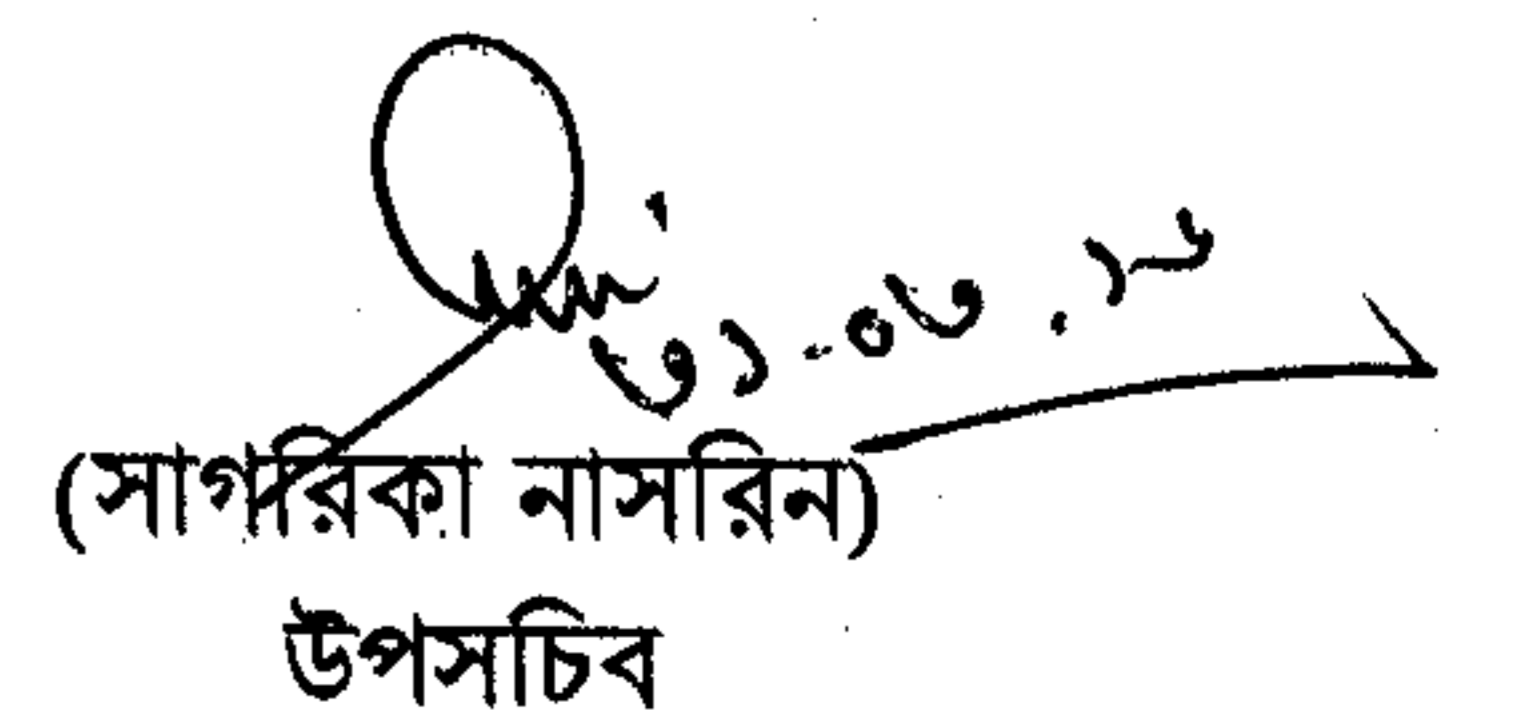 ৩১-০৩.১৬
(সাগরিকা নাসরিন)
উপসচিব